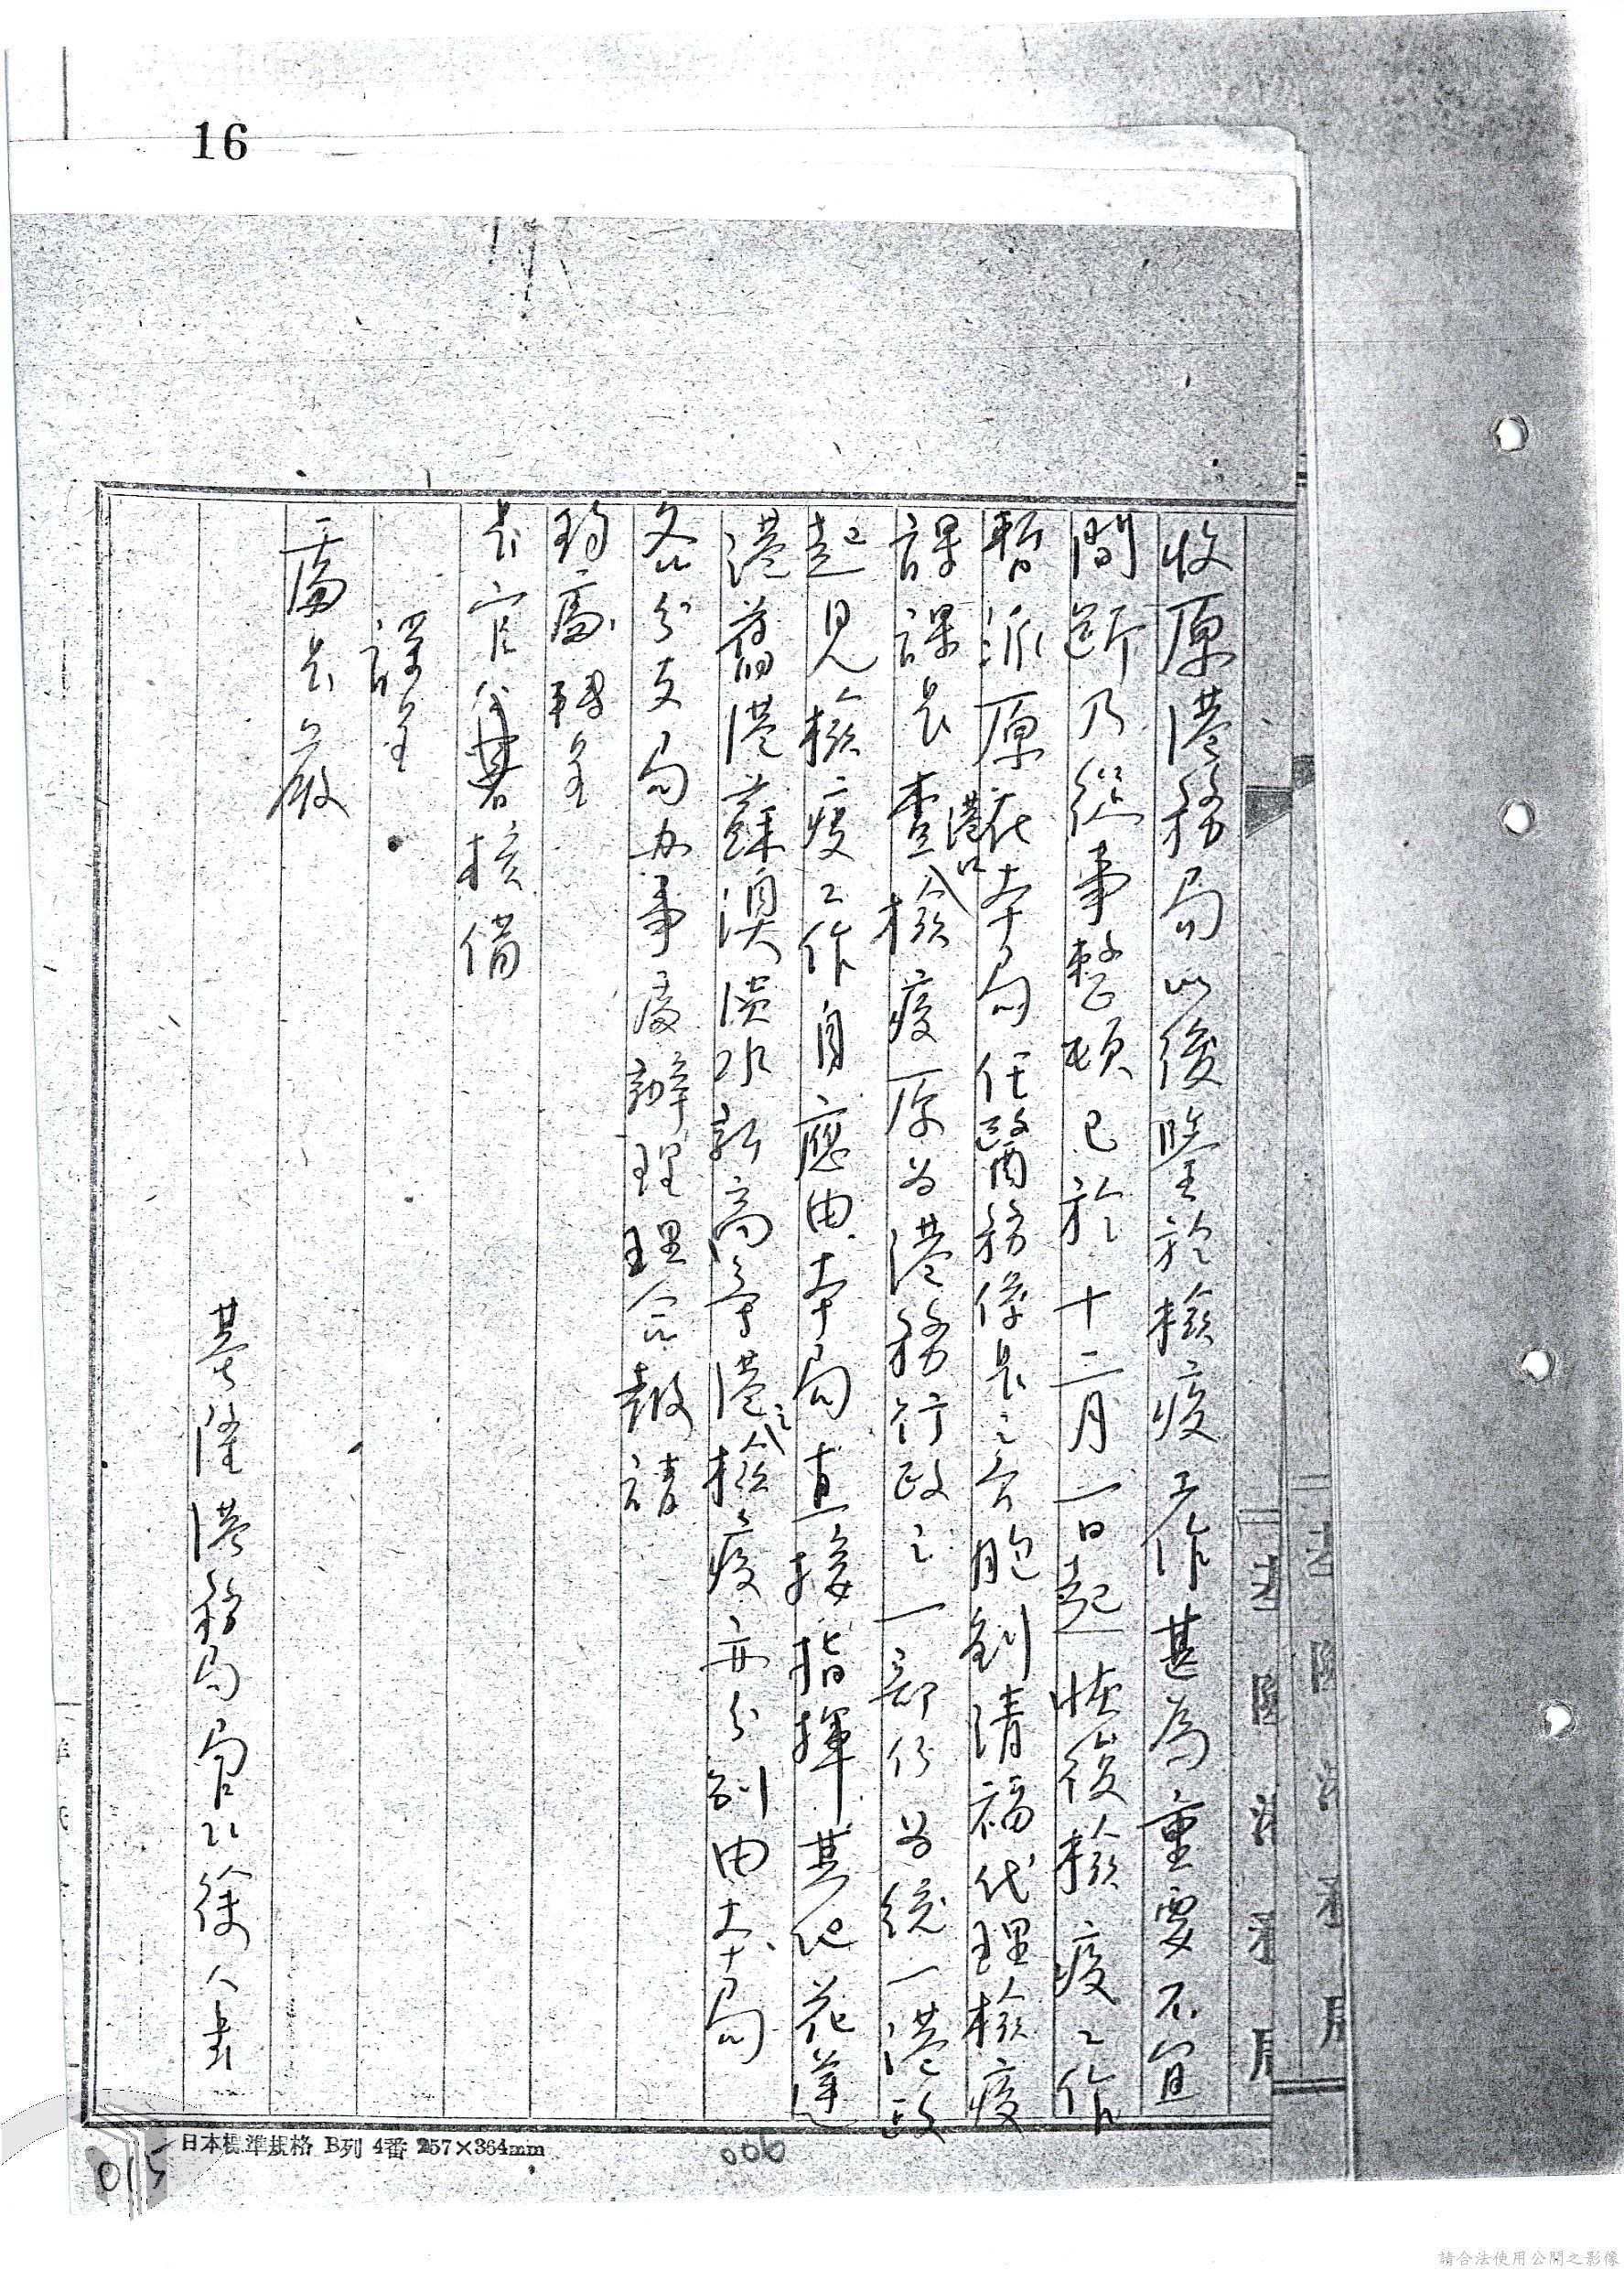 16
收原港務局以後鑒於檢疫工作甚為重要不宜
間斷乃從事整頓已於十二月一日起恢復檢疫工作
暫派原在本局任醫務係長之台胞劉清福代理檢疫
課課長查港口檢疫原为港務行政之一部份为統一港政
起見檢疫工作自應由本局直接指揮其他花蓮
港舊港蘇澳淡水新高等港之檢疫亦分別由本局
各分支局办事處辦理理合報請
鈞處轉呈
長官公署核備
謹呈
處長嚴
基隆港務局局長徐人壽
日本標準規格 B列 4番 257×364mm
006
015
請合法使用公開之影像